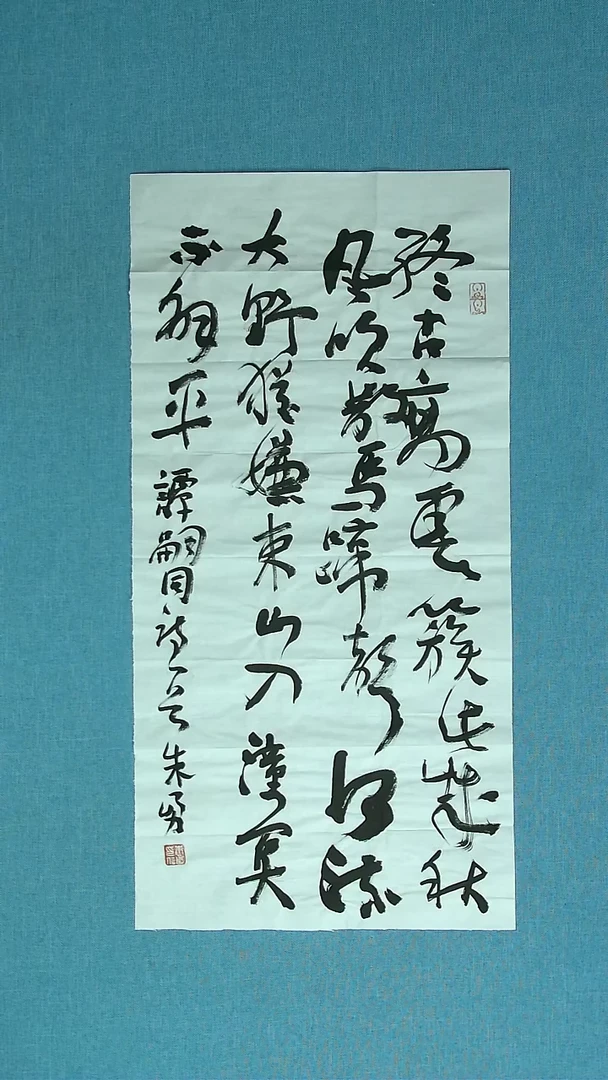 終古高雲簇此城秋
風吹散馬蹄聲河流
大野猶嫌束山入潼關
不解平 譚嗣同詩一首 朱勇